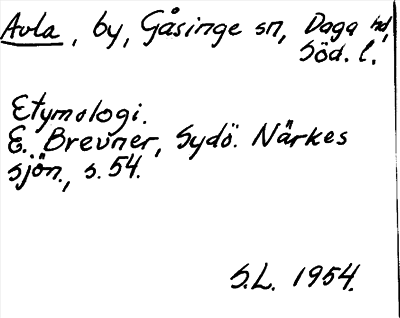 Avla, by, Gåsinge sn, Daga hd,
Söd. l.
Etymologi.
E. Brevner, Sydö. Närkes
sjön., s. 54.
S.L. 1954.